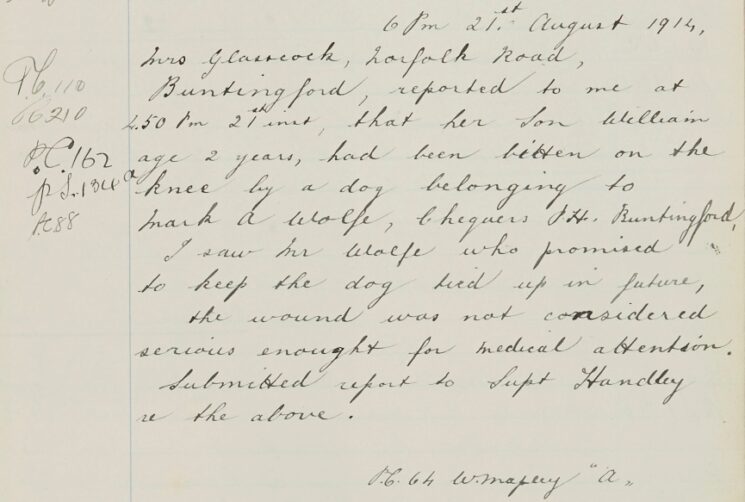 6 Pm 21.st August 1914,
Mrs Glasscock, Norfolk Road,
Buntingford, reported to me at
4.50 Pm 21st inst, that her Son William
age 2 years, had been bitten on the
knee by a dog belonging to
Mark A Wolfe, Chequers P.H. Buntingford,
I saw Mr Wolfe who promised
to keep the dog tied up in future,
the wound was not considered
serious enought for medical attention.
Submitted report to Supt Handley
re the above.
P.C. 64 W. "A"
P.C. 110
PC 210
P.C. 162
P.S. 134
88